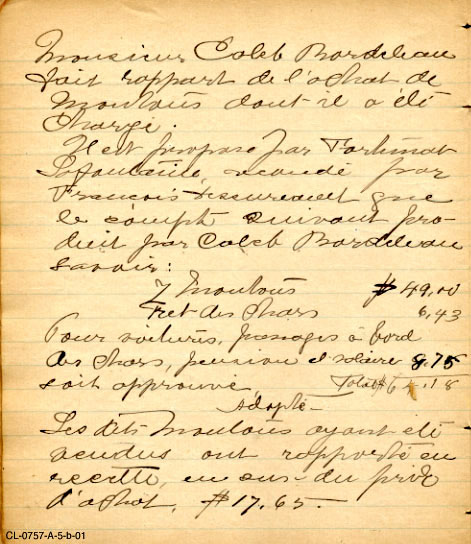 Monsieur Caleb Bordeleau
fait rapport de l'achat de
moutons dont il a été
chargé.
Il est proposé par Fortunat
Lafontaine, secondé par
François que
le compte suivant pro-
duit par Caleb Bordeleau
savoir:
7 moutons $49.00
Fret des chars 6.43
Pour voitures, passages à bord
des chars, pension et salaire 8.75
soit approuvé Total $64.18
Adopté —
Les dits moutons ayant été
vendus ont rapporté en
recette, en sus du prix
d'achat, $17.65.
CL-0757-A-5-b-01